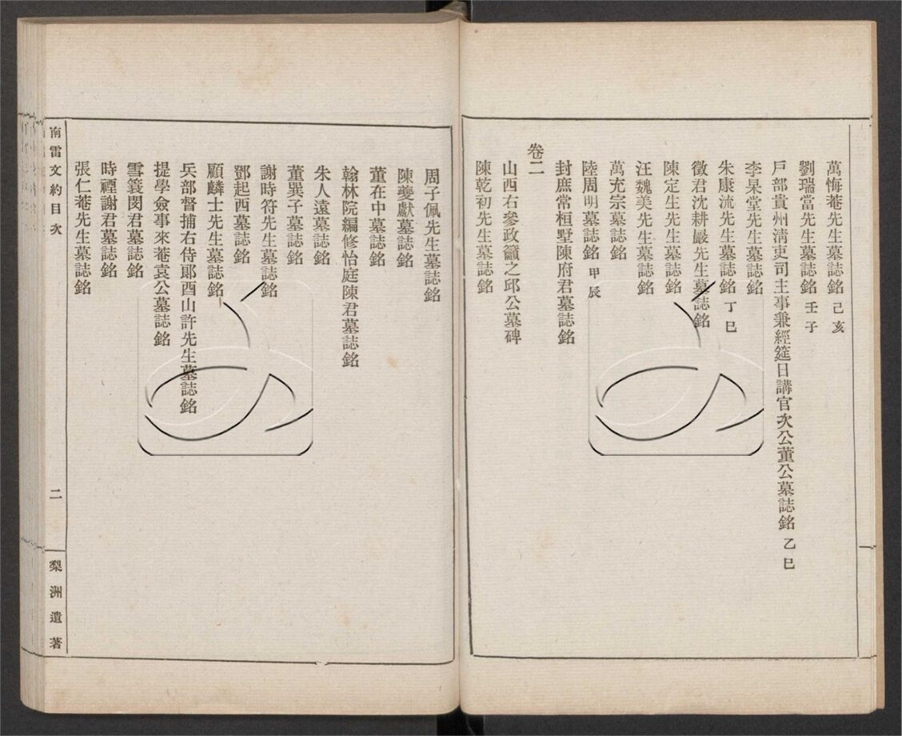 萬悔菴先生墓誌銘 己亥
劉瑞當先生墓誌銘 壬子
戶部貴州清吏司主事兼經筵日講官次公董公墓誌銘 乙巳
李杲堂先生墓誌銘
朱康流先生墓誌銘 丁巳
徵君沈耕巖先生墓誌銘
陳定生先生墓誌銘
汪魏美先生墓誌銘
萬充宗墓誌銘
陸周明墓誌銘 甲辰
封庶常桓墅陳府君墓誌銘
卷二
山西右參政籲之邱公墓碑
陳乾初先生墓誌銘
周子佩先生墓誌銘
陳夔獻墓誌銘
董在中墓誌銘
翰林院編修怡庭陳君墓誌銘
朱人遠墓誌銘
董巽子墓誌銘
謝時符先生墓誌銘
鄧起西墓誌銘
顧麟士先生墓誌銘
兵部督捕右侍郎酉山許先生墓誌銘
提學僉事來菴袁公墓誌銘
雪蓑閔君墓誌銘
時禋謝君墓誌銘
張仁菴先生墓誌銘
南雷文約目次 二 梨洲遺著